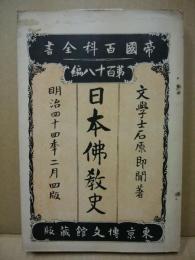 帝國百科全書
第百十八編
文學士石原即聞著
日本佛教史
明治四十四年二月四版
東京博文館藏版